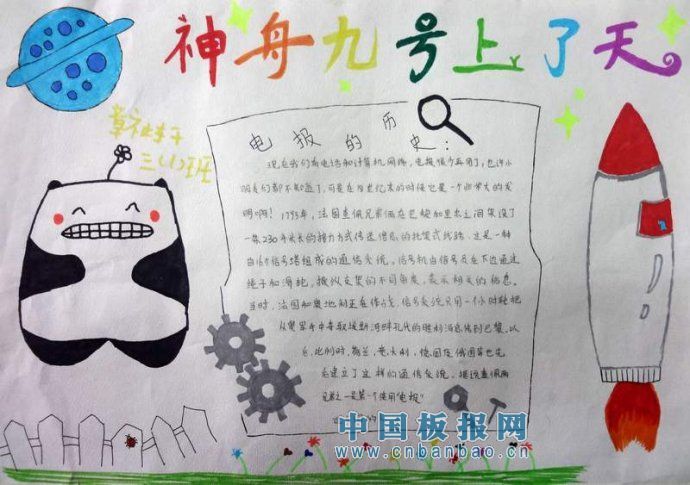 神舟九号上了天
三(1)班
电报的历史:
现在我们有电话和计算机网络,电报很少再用了;也许小
朋友们都不知道了,可是在
它是一个非常大的发
明啊!1793年,法国查佩兄弟俩在巴黎和里尔之间架设了
一条230千米长的接力方式传送信息的托架式线路。这是一种
由16个信号塔组成的通信系统。信号机由信号员在下边通过
绳子和滑轮,操纵支架的不同角度,表示相关的信息。
当时,法国和奥地利正在作战,信号系统只用一个小时就把
从奥军手中夺取
的胜利消息传到巴黎。以
后,比利时、荷兰、意大利、德国及俄国等也先
后建立了这样的通信系统。据说查佩两
兄弟之一是第一个使用“电报”
中国板报网
www.cnbanbao.cn